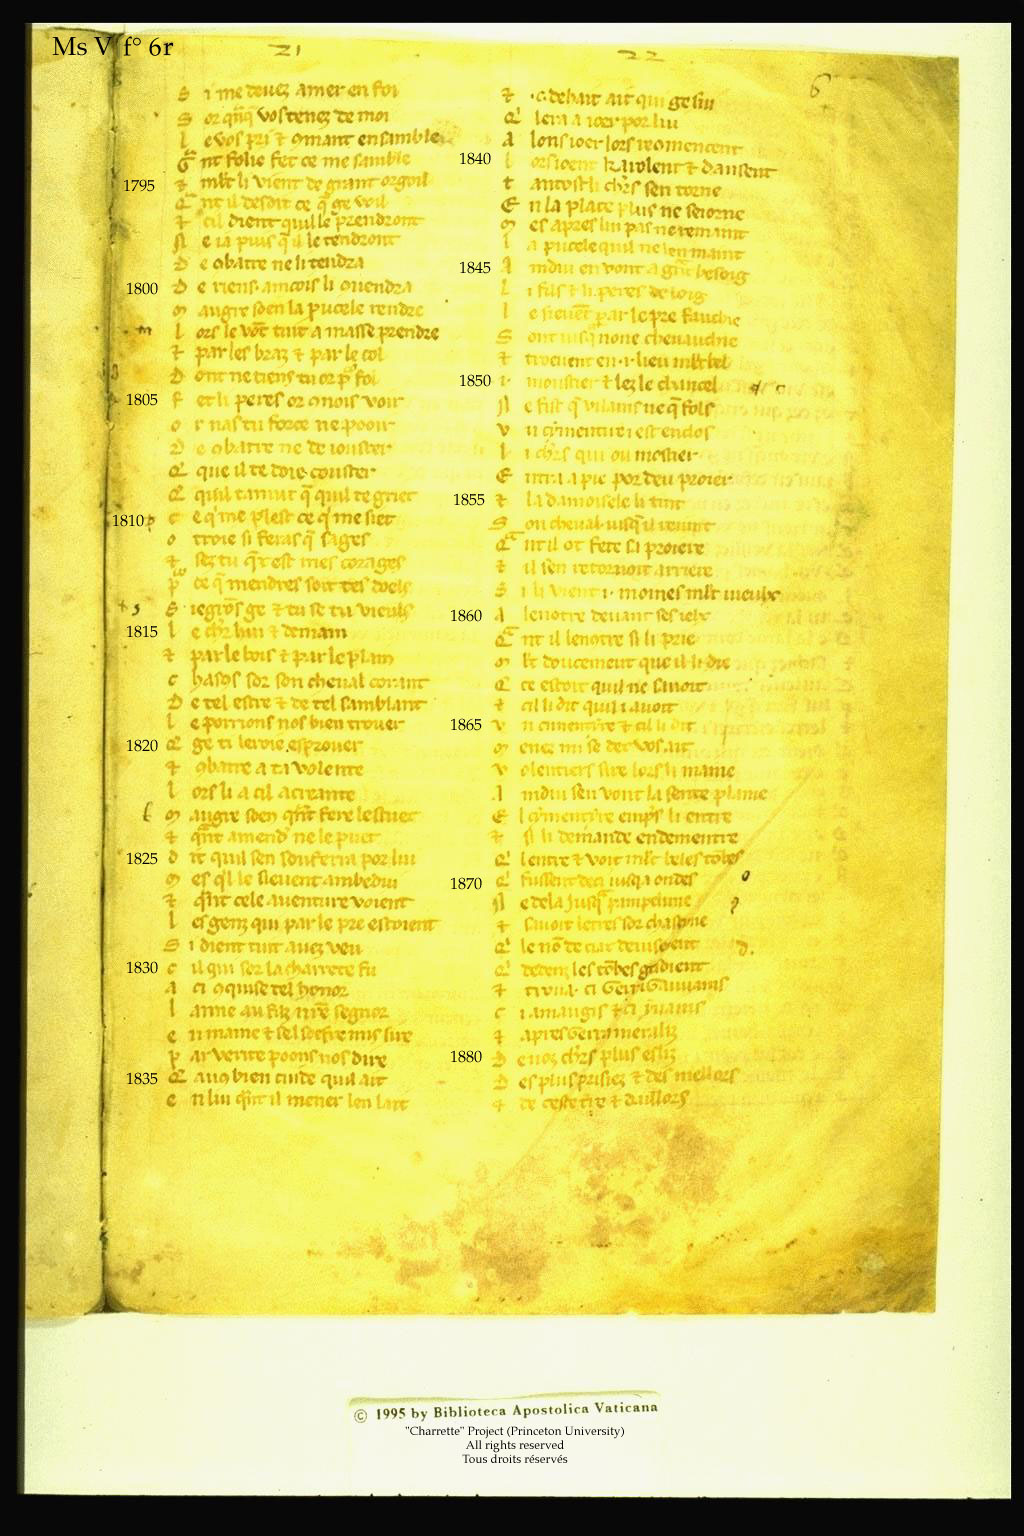 Ms V f° 6r
21
22
6
S i me devez amer en foi
S or qnq̃ vos tenez de moi
L e vos pri ⁊ ꝯmant ensamble
G̃ nt folie fet ce me samble
1795 ⁊ ml̃t li vient de grant orgoil
Q̃ nt il desdit ce q̃ ge voil
⁊ cil dient quil le prendront
N e ia puis q̃ il le tendront
D e ꝯbatre ne li tendra
1800 D e riens amcois li ꝯvendra
M augre soen la pucele rendre
L ors le võt tuit a masse prendre
⁊ par les braz ⁊ par le col
D ont ne tiens tu or p̃ fol
1805 F et li peres or ꝯnois voir
O r nas tu force ne pooir
D e ꝯbatre ne de iouster
Q ue que il te doie couster
Q quil tanuit q̃ quil te griet
1810 C e q̃ me plest ce q̃ me siet
O troie si feras q̃ sages
⁊ sez tu q̃x est mes corages
P̃ ce q̃ mendres soit tes duels
S iegrõs ge ⁊ tu se tu vieuls
1815 L e chr̃ hui ⁊ demain
⁊ par le bois ⁊ par le plain
C hascũs sor son cheval corant
D e tel estre ⁊ de tel samblant
L e porrions nos bien trover
1820 Q ge ti leroie esprover
⁊ ꝯbatre a ta volente
L ors li a cil acreante
M augre soen qñt fere lestuet
⁊ qñt amend̾ ne le puet
1825 D it quil sen souferra por lui
M es qĩl le sievent ambedui
⁊ qñt cele aventure voient
L es genz qui par le pre estoient
S i dient tuit avez veu
1830 C il qui sor la charrete fu
A ci ꝯquise tel honor
L anme au filz nr̃e segnor
E n maine ⁊ sel soefre mis sire
P ar verite poons nos dire
1835 Q auq̃ bien cuide quil ait
E n lui qñt il mener len lait
⁊ .c. dehait ait qui ge sui
Q lera a ioer por lui
A lons ioer lors recomencent
1840 L ors ioent kavolent ⁊ dansent
T antost li chr̃s sen torne
E n la place plus ne seiorne
M es apres lui pas ne remaint
L a pucele quil ne len maint
1845 A mdui en vont a gñt besoig
L i fils ⁊ li peres de loig
L e sievẽt par le pre fauchie
S ont iusq̃ none chevauchie
⁊ trovent en .i. lieu ml̃t bel
1850 I . moustier ⁊ lez le chancel
N e fist q̃ vilains ne q̃ fols
V n cymentire i est enclos
L i chr̃s qui ou mostier
E ntra a pie por deu proier
1855 ⁊ la damoisele li tint
S on cheval iusq̃ il revint
Q̃ nt il ot fete sa proiere
⁊ il sen retornoit arriere
S i li vient .i. moines ml̃t vieulx
1860 A lenꝯtre devant ses ielx
Q̃ nt il lenꝯtre si li prie
M l̃t doucement que il li die
Q ce estoit quil ne savoit
⁊ cil li dit quil i avoit
1865 V n cimentire ⁊ cil li dit
M enez mi se dex vos ait
V olentiers sire lors li maine
A mdui sen vont la sente plaine
E l cymentyre emp̃s li entre
⁊ si li demande endementre
Q̃ lentre ⁊ voit ml̃t beles tõbes
1870 Q̃ fussent deci iusqa ondes
N e dela jusq̃ pampelune
⁊ savoit letres sor chascune
Q̃ le nõ de ciax devisoient
Q̃ dedenz les tõbes gisdient
⁊ trova ci Gerra Gauvains
C i amaugis ⁊ ci yvains
⁊ apres Gerra meraliz
1880 D e noz chr̃s plus esliz
D es plus prisiez ⁊ des mellors
⁊ de ceste tr̃e ⁊ daillors
© 1995 by Biblioteca Apostolica Vaticana
"Charrette" Project (Princeton University)
All rights reserved
Tous droits réservés